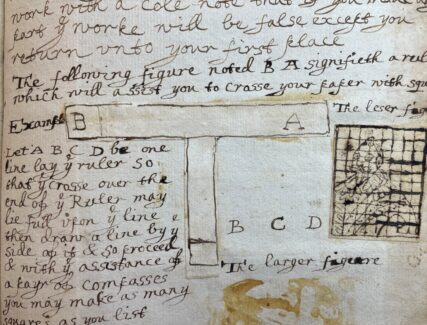 work with a Cole note that if you
part yͤ worke will be false except you
return vnto your first place
The following figure noted B A signifieth a rul
which will asist you to Crosse your paper with squ
The leser fig
Exampl B A
Let A B C D be one
line lay yͤ ruler so
that yͤ crosse over the
end of yͤ Ruler may
lie full vpon yͤ line
then draw a line by yͤ
side of it & so proceed
& with yͤ assistance of
a payr of Compasses
you may make as many
squares as you list
B C D
The larger figure